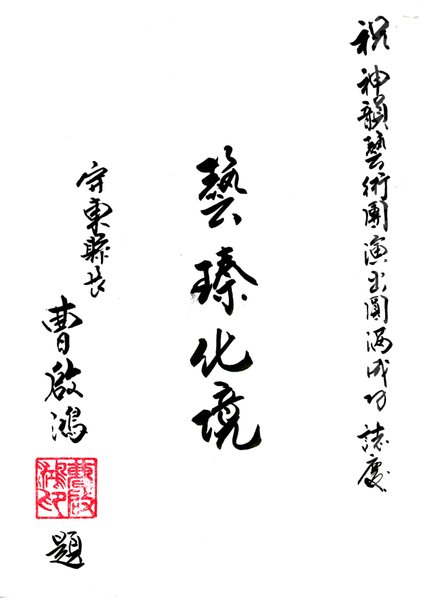 祝 神韻藝術團演出圓滿成功 誌慶
藝瑧化境
屏東縣長
曹啟鴻
曹啟鴻印
題